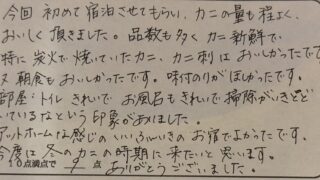 今回 初めて宿泊させてもらい、カニの量も程よく、
おいしく頂きました。品数も多くカニ新鮮で
特に炭火で焼いていたカニ、カニ刺はおいしかったです
又 朝食もおいしかったです。味付のりがほしかった。
部屋・トイレきれいで お風呂もきれいで掃除がいきとど
いているなという印象がありました。
アットホームな感じの いいふんいきの お宿でよかったです。
今度は冬のカニの時期に来たいと思います。
10点満点で 点 ありがとうございました。